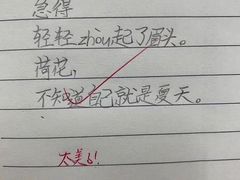 急得
轻轻zhou起了眉头。
荷花，
不知道自己就是夏天。
太美了!